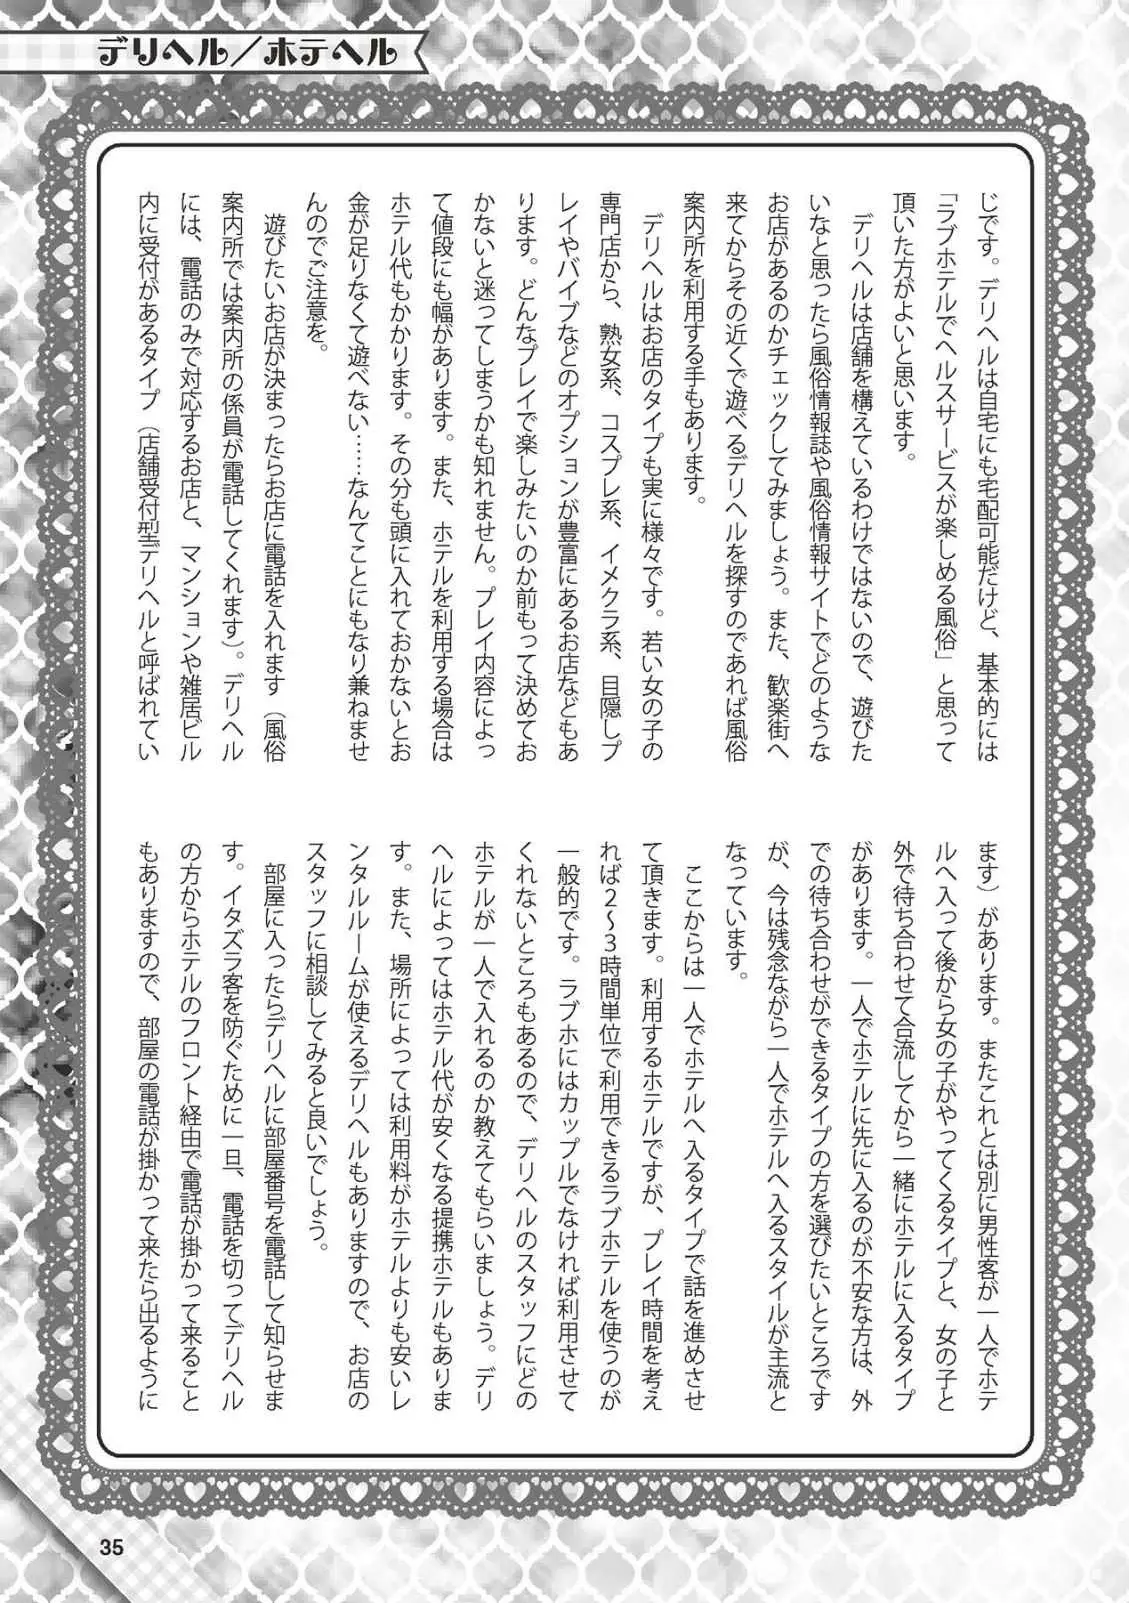 デリヘル／ホテヘル
じです。デリヘルは自宅にも宅配可能だけど、基本的には
「ラブホテルでヘルスサービスが楽しめる風俗」と思って
頂いた方がよいと思います。
デリヘルは店舗を構えているわけではないので、遊びた
いなと思ったら風俗情報誌や風俗情報サイトでどのような
お店があるのかチェックしてみましょう。また、歓楽街へ
来てからその近くで遊べるデリヘルを探すのであれば風俗
案内所を利用する手もあります。
デリヘルはお店のタイプも実に様々です。若い女の子の
専門店から、熟女系、コスプレ系、イメクラ系、目隠しプ
レイやバイブなどのオプションが豊富にあるお店などもあ
ります。どんなプレイで楽しみたいのか前もって決めてお
かないと迷ってしまうかも知れません。プレイ内容によっ
て値段にも幅があります。また、ホテルを利用する場合は
ホテル代もかかります。その分も頭に入れておかないとお
金が足りなくて遊べない……なんてことにもなり兼ねませ
んのでご注意を。
遊びたいお店が決まったらお店に電話を入れます（風俗
案内所では案内所の係員が電話してくれます）。デリヘル
には、電話のみで対応するお店と、マンションや雑居ビル
内に受付があるタイプ（店舗受付型デリヘルと呼ばれてい
ます）があります。またこれとは別に男性客が一人でホテ
ルへ入って後から女の子がやってくるタイプと、女の子と
外で待ち合わせて合流してから一緒にホテルに入るタイプ
があります。一人でホテルに先に入るのが不安な方は、外
での待ち合わせができるタイプの方を選びたいところです
が、今は残念ながら一人でホテルへ入るスタイルが主流と
なっています。
ここからは一人でホテルへ入るタイプで話を進めさせ
て頂きます。利用するホテルですが、プレイ時間を考え
れば２～３時間単位で利用できるラブホテルを使うのが
一般的です。ラブホにはカップルでなければ利用させて
くれないところもあるので、デリヘルのスタッフにどの
ホテルが一人で入れるのか教えてもらいましょう。デリ
ヘルによってはホテル代が安くなる提携ホテルもありま
す。また、場所によっては利用料がホテルよりも安いレ
ンタルルームが使えるデリヘルもありますので、お店の
スタッフに相談してみると良いでしょう。
部屋に入ったらデリヘルに部屋番号を電話して知らせま
す。イタズラ客を防ぐために一旦、電話を切ってデリヘル
の方からホテルのフロント経由で電話が掛かって来ること
もありますので、部屋の電話が掛かって来たら出るように
35